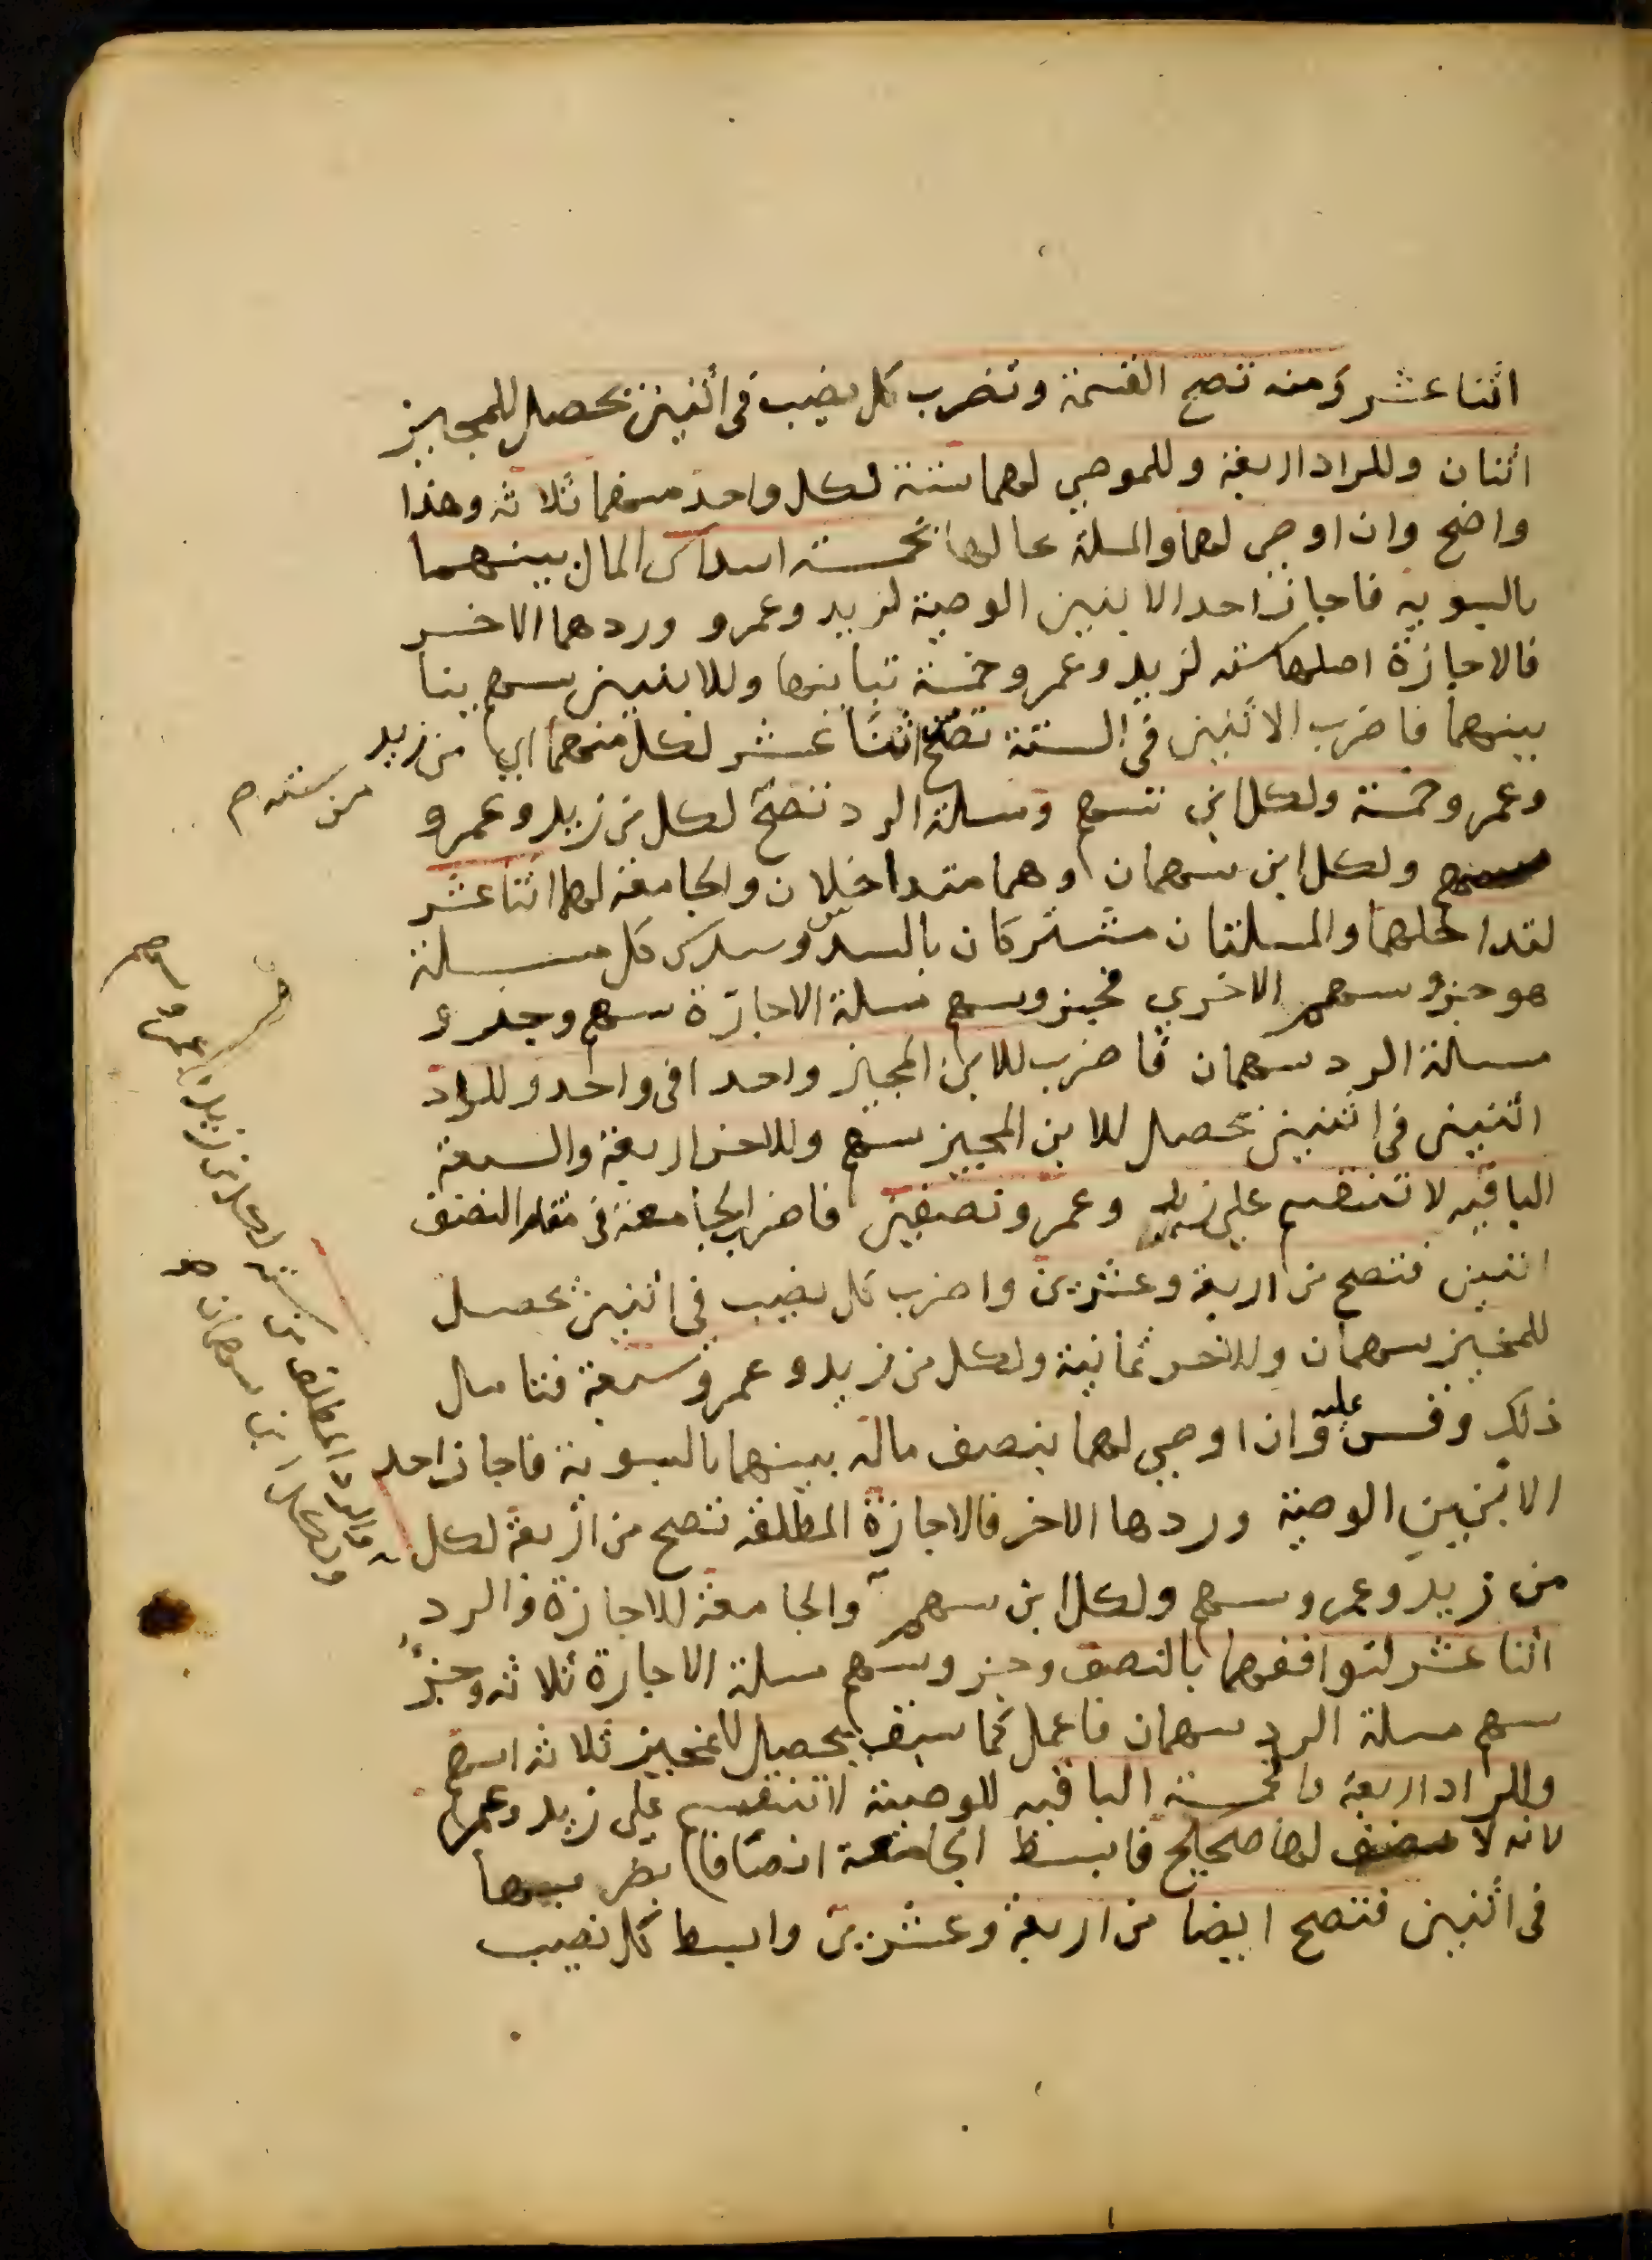 اثنا عشر ومنه تصح القسمة وتضرب كل نصيب فى اثنين يحصل للمجيز
اثنان وللراد اربعة وللموصي لهما ستة لكل واحد منهما ثلاثه وهذا
واضح وان اوصى لهما والمسلة بحالها بخمسة اسداس المال بينهما
بالسويه فاجاز احد الابنين الوصية لزيد وعمرو وردهما الاخر
فالاجازة اصلها سته لزيد وعمرو خمسة تباينهما وللابنين سهم يباينا
بينهما فاضرب الاثنين فى الستة تصح اثنا عشر لكل منهما اي من زيد
وعمرو خمسة ولكل ابن سهم ومسلة الرد تصح لكل من زيد وعمرو
من سته صح
سهم ولكل ابن سهمان وهما متداخلان والجامعة لهما اثنا عشر
لتداخلهما والمسلتان مشتركان بالسدس وسدس كل مسلة
هو جزو سهم الاخري فجزو سهم مسلة الاجازة سهم وجزء
مسلة الرد سهمان فاضرب للابن المجيز واحدا فى واحد وللراد
اثنين فى اثنين يحصل للابن المجيز سهم وللاخر اربعة والسبعة
الباقيه لا تنقسم على زيد وعمرو نصفين فاضرب الجامعة فى مقام النصف
اثنين فتصح من اربعة وعشرين واضرب كل نصيب فى اثنين يحصل
للمجيز سهمان وللاخر ثمانية ولكل من زيد وعمرو سبعة فتامل
ذلك وقس عليه وان اوصي لهما بنصف ماله بينهما بالسوية فاجاز احد
الابنين الوصية وردها الاخر فالاجازة المطلقة تصح من اربعة لكل
من زيد وعمرو سهم ولكل ابن سهم والجامعة للاجازة والرد
اثنا عشر لتوافقهما بالنصف وجزو سهم مسلة الاجازة ثلاثه وجزؤ
سهم مسلة الرد سهمان فاعمل كما سبق يحصل للمجيز ثلاثة اسهم
وللراد اربعة والخمسة الباقيه للوصية لا تنقسم على زيد وعمرو
لانه لا نصف لها صحيح فابسط الجامعة انصافا بضربها
فى اثنين فتصح ايضا من اربعة وعشرين وابسط كل نصيب
والرد المطلق من سته لكل من زيد وعمرو سهم
ولكل ابن سهمان صح